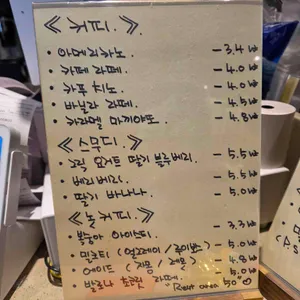 ≪ 커피. ≫
· 아메리카노. - 3.4₩
· 카페 라떼. - 4.0₩
· 카푸치노. - 4.0₩
· 바닐라 라떼. - 4.5₩
· 카라멜 마끼야또. - 4.8₩
≪ 스무디. ≫
· 그릭 요거트 딸기 블루베리. - 5.5₩
· 베리베리. - 5.5₩
· 딸기 바나나. - 5.0₩
≪ 논커피. ≫
· 복숭아 아이스티. - 3.3₩
· 밀크티 (얼그레이 / 루이보스) - 5.0₩
· 에이드 ( 자몽 / 레몬 ) - 4.8₩
· 발로나 초코릿 라떼. - 5.0₩